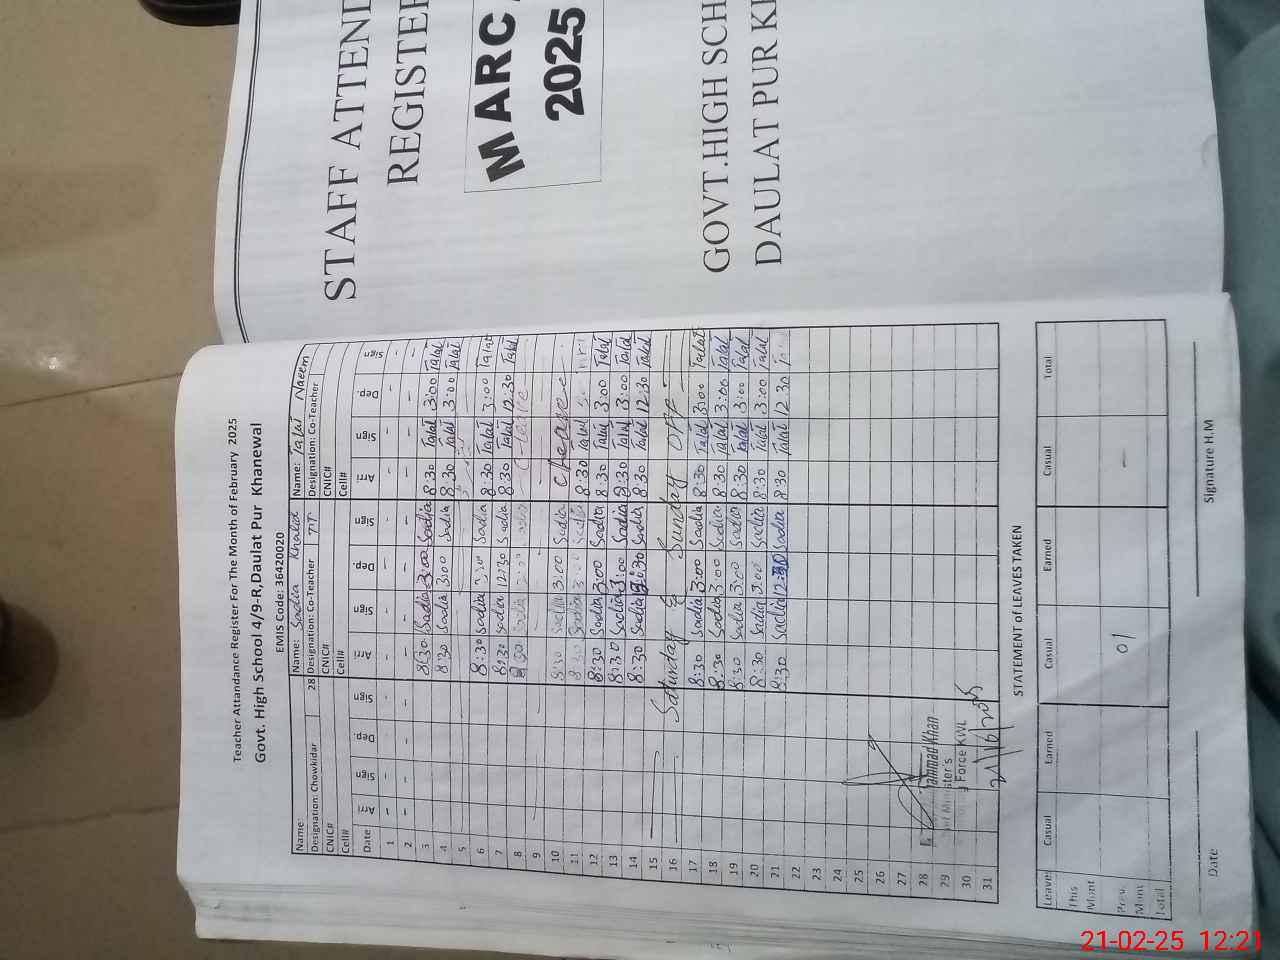 Teacher Attandance Register For The Month of February 2025
Govt. High School 4/9-R,Daulat Pur Khanewal
EMIS Code: 36420020
Name: Name: Sadia Khalid Name: Talal Naeem
Designation: Chowkidar 28 Designation: Co-Teacher Designation: Co-Teacher
CNIC# CNIC# CNIC#
Cell# Cell# Cell#
Date Arri. Sign Dep. Sign Arri. Sign Dep. Sign Arri. Sign Dep. Sign
1 - - - - - - - - - - - -
2 - - - - - - - - - - - -
3 8:30 Sadia 3:00 Sadia 8:30 Talal 3:00 Talal
4 8:30 Sadia 3:00 Sadia 8:30 Talal 3:00 Talal
5
6 8:30 Sadia Sadia 8:30 Talal 3:00 Talal
7 8:30 Sadia 12:30 Sadia 8:30 Talal 12:30 Talal
8 8:30 Sadia
9
10 8:30 Sadia 3:00 Sadia C leave
11 8:30 Sadia 3:00 Sadia 8:30 Talal
12 8:30 Sadia 3:00 Sadia 8:30 Talal 3:00 Talal
13 8:30 Sadia 3:00 Sadia 8:30 Talal 3:00 Talal
14 8:30 Sadia Sadia 8:30 Talal 12:30 Talal
15
16 Saturday & Sunday OFF
17 8:30 Sadia 3:00 Sadia 8:30 Talal 3:00 Talal
18 8:30 Sadia 3:00 Sadia 8:30 Talal 3:00 Talal
19 8:30 Sadia 3:00 Sadia 8:30 Talal 3:00 Talal
20 8:30 Sadia 3:00 Sadia 8:30 Talal 3:00 Talal
21 8:30 Sadia 12:30 Sadia 8:30 Talal 12:30
22
23
24
25
26
27
28
29
30
31
STATEMENT of LEAVES TAKEN
Leave Casual Earned Casual Earned Casual Total
This Mont
Prev. Mont 01 -
Total
Date Signature H.M
STAFF ATTEND
REGISTER
MARC
2025
GOVT.HIGH SCH
DAULAT PUR K
21-02-25 12:21